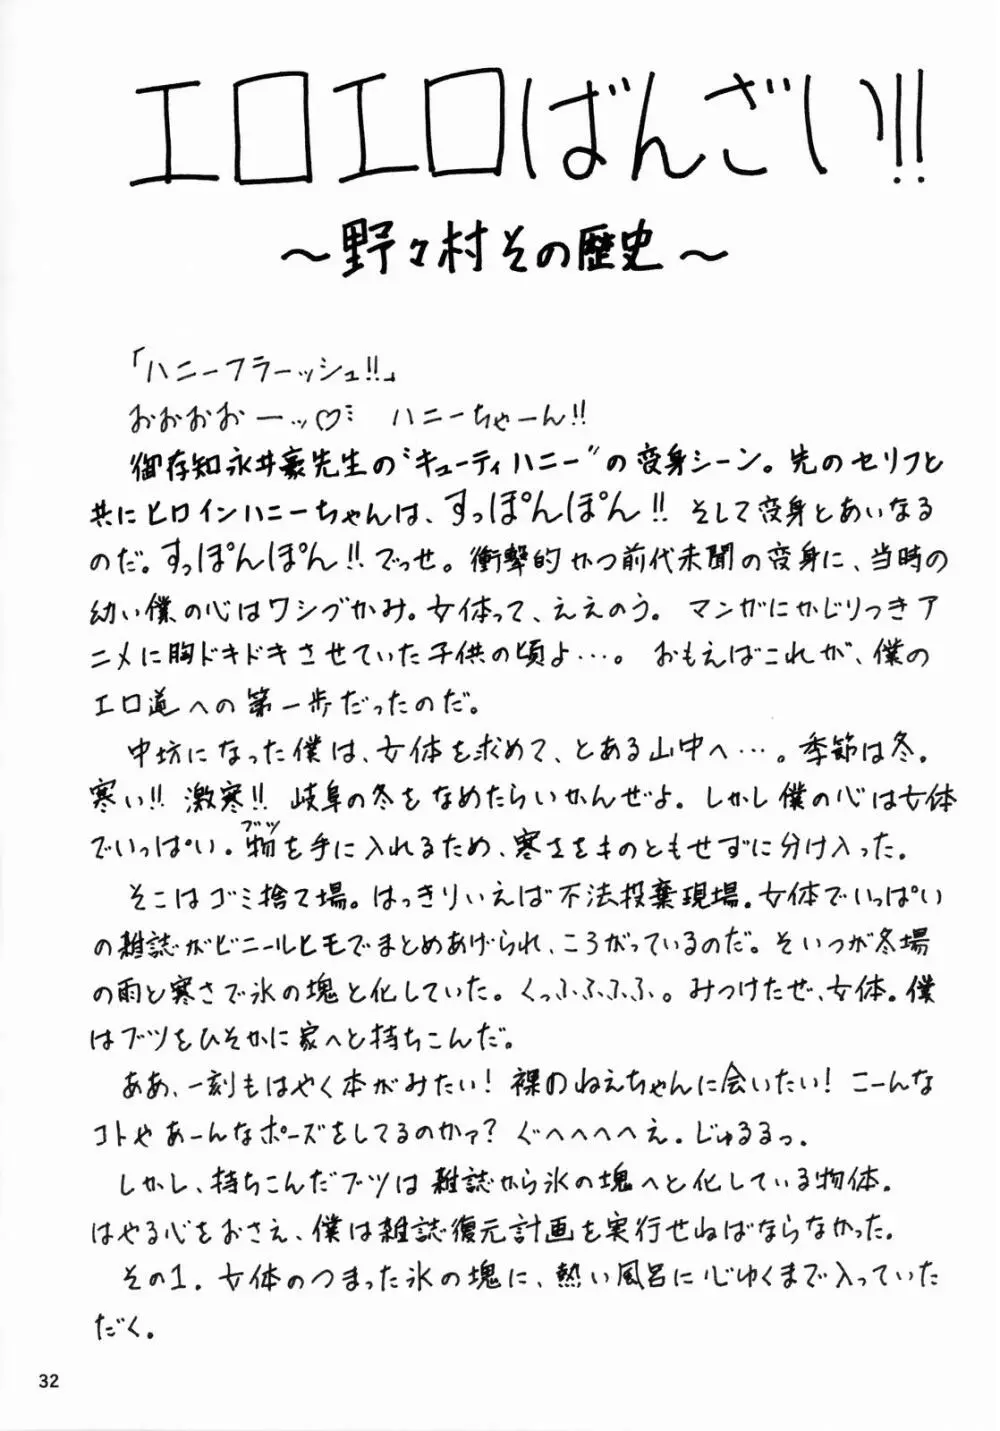 エロエロばんざい!!
～野々村その歴史～
「ハニーフラーッシュ!!」
おおおおーッ♡ ハニーちゃーん!!
御存知永井豪先生の"キューティハニー"の変身シーン。先のセリフと
共にヒロインハニーちゃんは、すっぽんぽん!! そして変身とあいなる
のだ。すっぽんぽん!!でっせ。衝撃的かつ前代未聞の変身に、当時の
幼い僕の心はワシづかみ。女体って、ええのう。 マンガにかじりつきア
ニメに胸ドキドキさせていた子供の頃よ…。 おもえばこれが、僕の
エロ道への第一歩だったのだ。
中坊になった僕は、女体を求めて、とある山中へ…。季節は冬。
寒い!! 激寒!! 岐阜の冬をなめたらいかんぜよ。しかし僕の心は女体
でいっぱい。物を手に入れるため、寒さをものともせずに分け入った。
ブツ
そこはゴミ捨て場。はっきりいえば不法投棄現場。女体でいっぱい
の雑誌がビニールヒモでまとめあげられ、ころがっているのだ。そいつが冬場
の雨と寒さで氷の塊と化していた。くっふふふふ。みつけたぜ、女体。僕
はブツをひそかに家へと持ちこんだ。
ああ、一刻もはやく本がみたい! 裸のねえちゃんに会いたい! こーんな
コトやあーんなポーズをしてるのかァ? ぐへへへへえ。じゅるるっ。
しかし、持ちこんだブツは雑誌から氷の塊へと化している物体。
はやる心をおさえ、僕は雑誌復元計画を実行せねばならなかった。
その1. 女体のつまった氷の塊に、熱い風呂に心ゆくまで入っていた
だく。
32